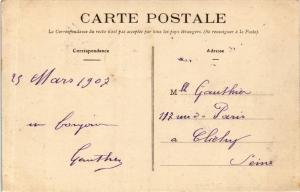 CARTE POSTALE
La Correspondance du recto n'est pas acceptée par tous les pays étrangers. (Se renseigner à la Poste)
Correspondance
Adresse
25 Mars 1907
un bonjour
Gauthier
Mlle Gauthier
rue de Paris
a Clichy
Seine